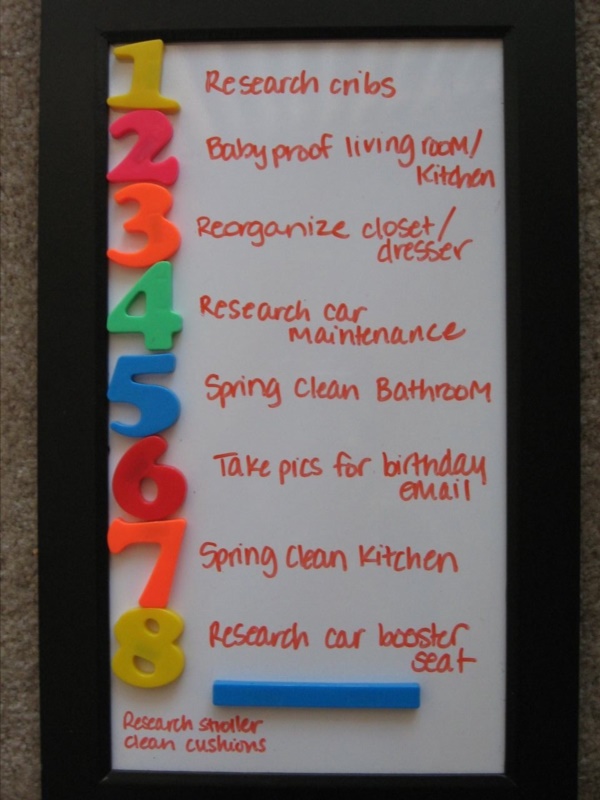 1 Research cribs
2 Babyproof living room/
Kitchen
3 Reorganize closet/
dresser
4 Research car
maintenance
5 Spring Clean Bathroom
6 Take pics for birthday
email
7 Spring Clean Kitchen
8 Research car booster
seat
Research stroller
clean cushions